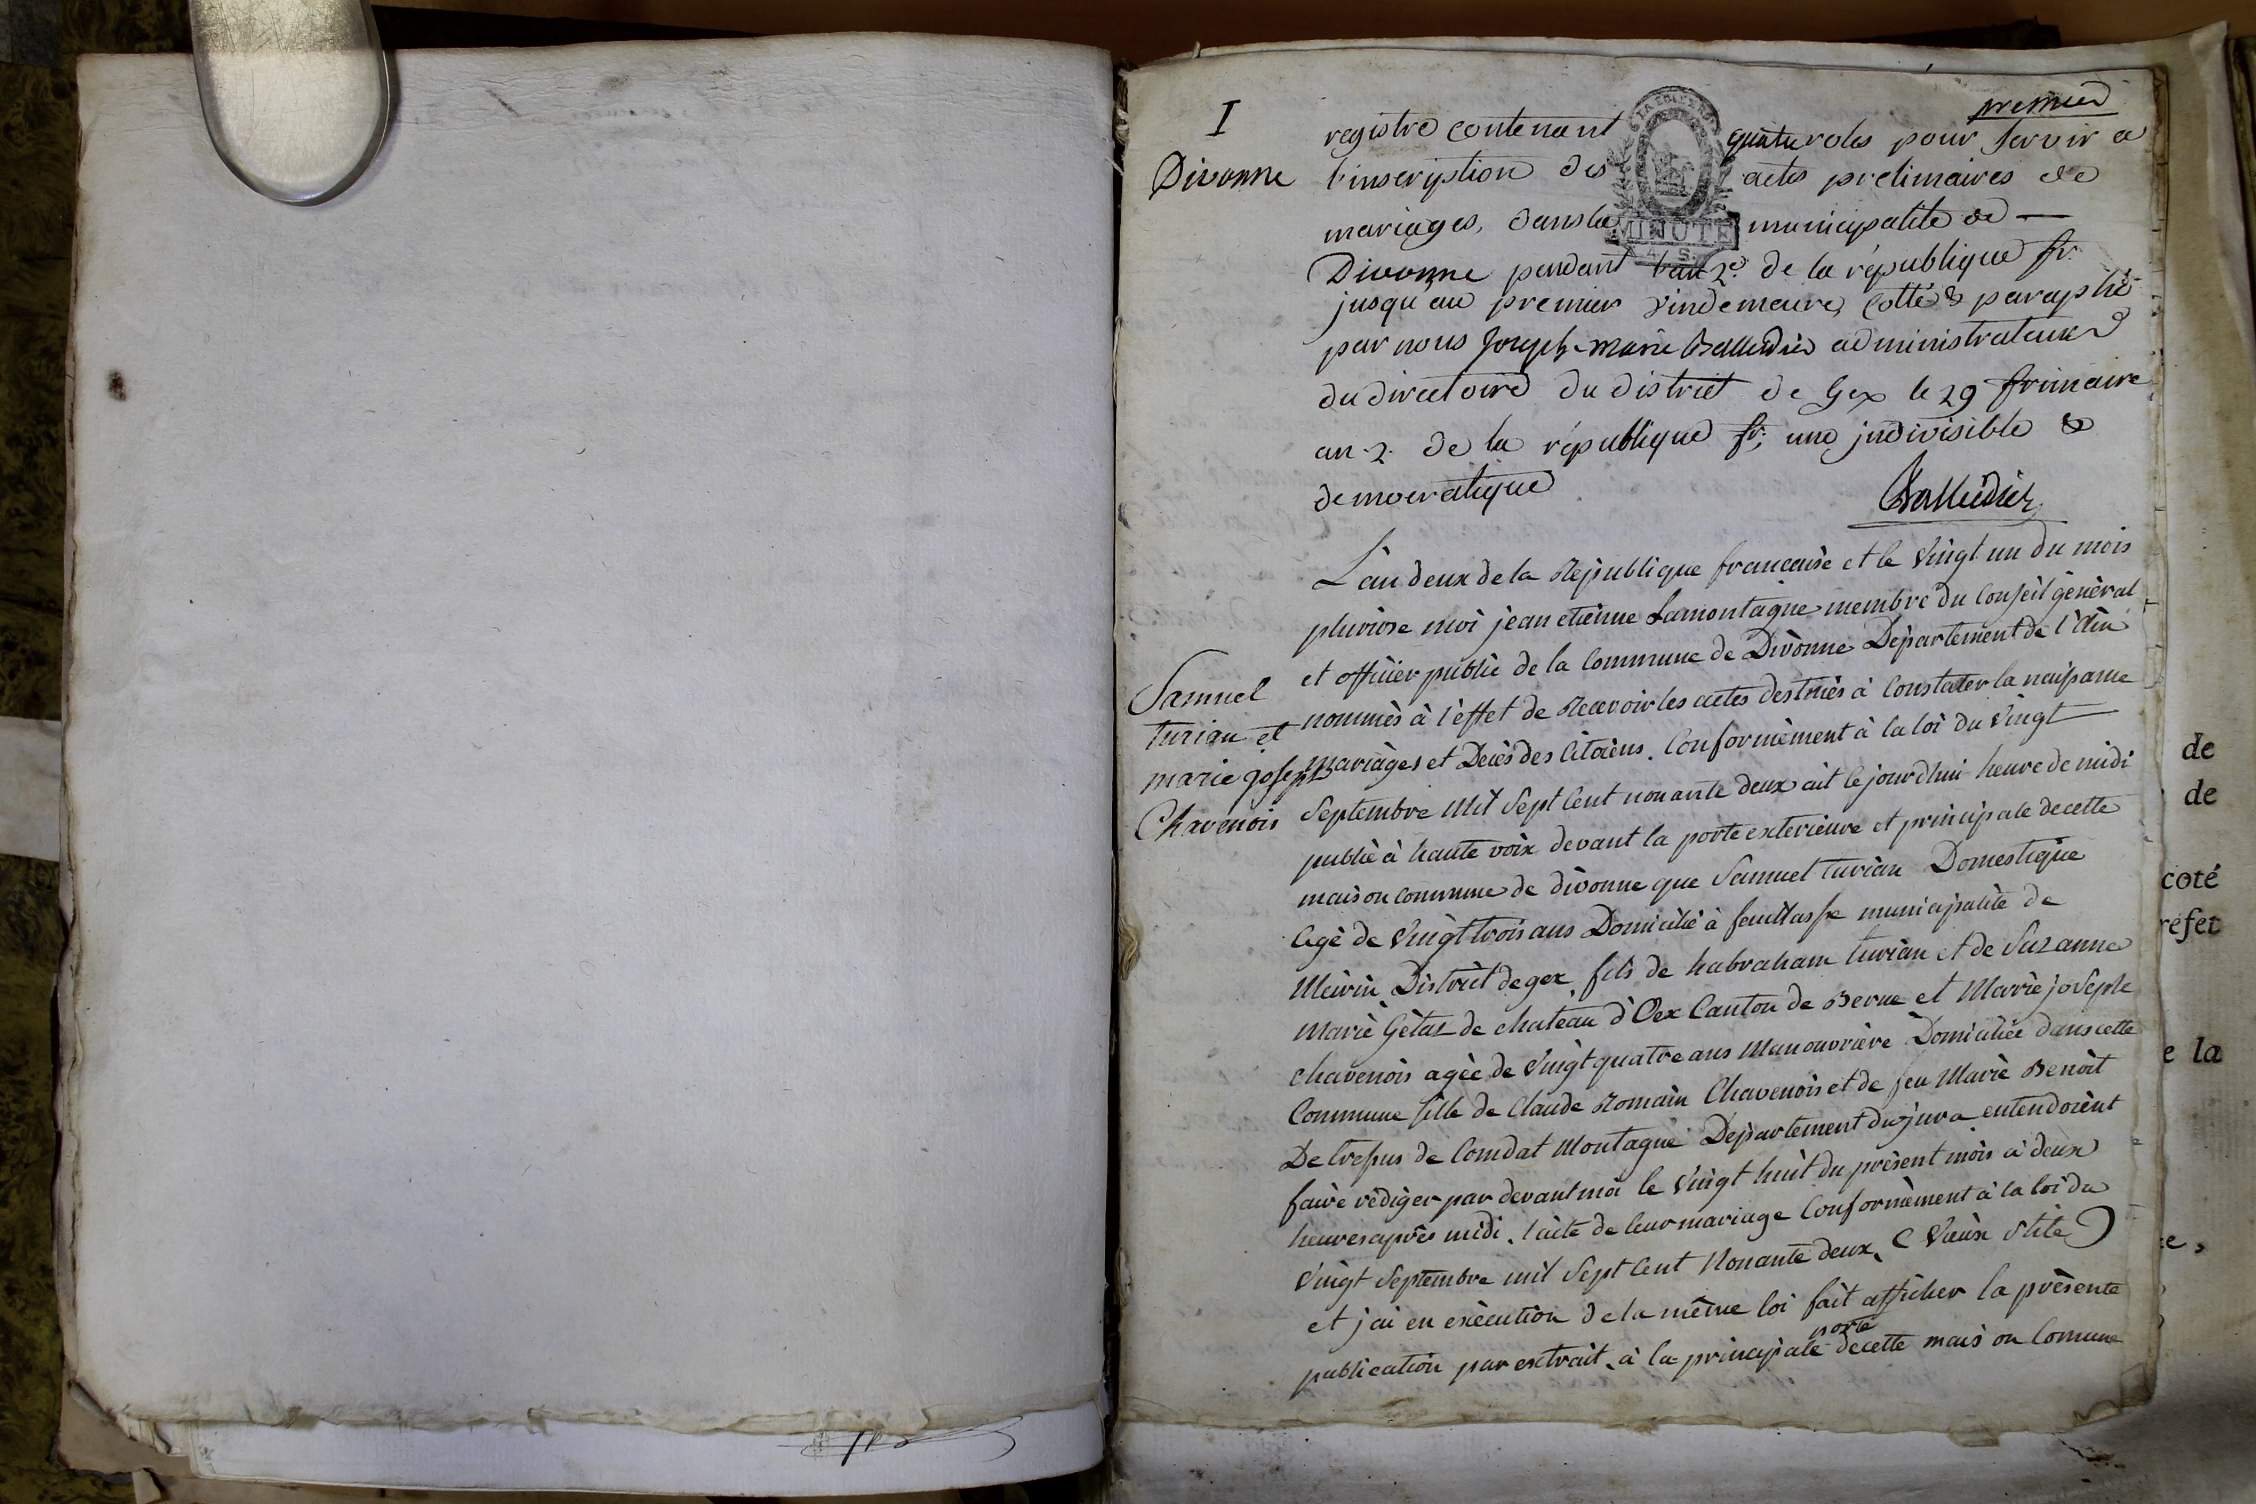 premier
I
Divonne
registre contenant quatre roles pour servir a
l'inscription des actes prelimaires de
mariages, dans la municipalité de —
Divonne pendant l'an 2e. de la république fr.
jusqu'au premier vindemeire, cotté & paraphé
par nous Joseph-Marie Balleidier administrateur
du directoire du district de Gex le 29 frimaire
an 2. de la république fr; une indivisible &
democratique
Balleidier
MINUTE
L'an deux de la Republique francaise et le vingt un du mois
pluviose moi jean etienne Lamontagne membre du Conseil général
et officier public de la Commune de Divonne Departement de l'Ain
nommés à l'effet de Recevoir les actes destinés à Constater la naissance
mariages et Decès des Citoiens. Conformèment à la loi du Vingt
Septembre Mil Sept Cent nonante deux ait le jourdhui heure de midi
publié à haute voix devant la porte exterieure et principale decette
maison commune de divonne que Samuel turian Domestique
agé de Vingt trois ans Domicilié à feuillasse municipalité de
Meirin District de gex fils de habraham turian et de Suzanne
Marie Gétaz de chateau d'Oex Canton de Berne et Marie joseph
Chavenois agée de Vingt quatre ans Manouvrière Domiciliée dans cette
Commune fille de Claude Romain Chavenois et de feu Marie Benoit
De trepus de Comdat Montagne Departement du jura entendoient
faire rédiger par devant moi le Vingt huit du présent mois à deux
heures après midi, l'acte de leur mariage Conformèment à la loi du
Vingt Septembre mil Sept Cent Nonante deux, ( Vieux Stile )
et j'ai en exècution de la même loi fait afficher la présente
porte
publication par extrait, à la principale decette maison Comune
Samuel
turian et
marie joseph
Chavenois
de
de
coté
refet
e la